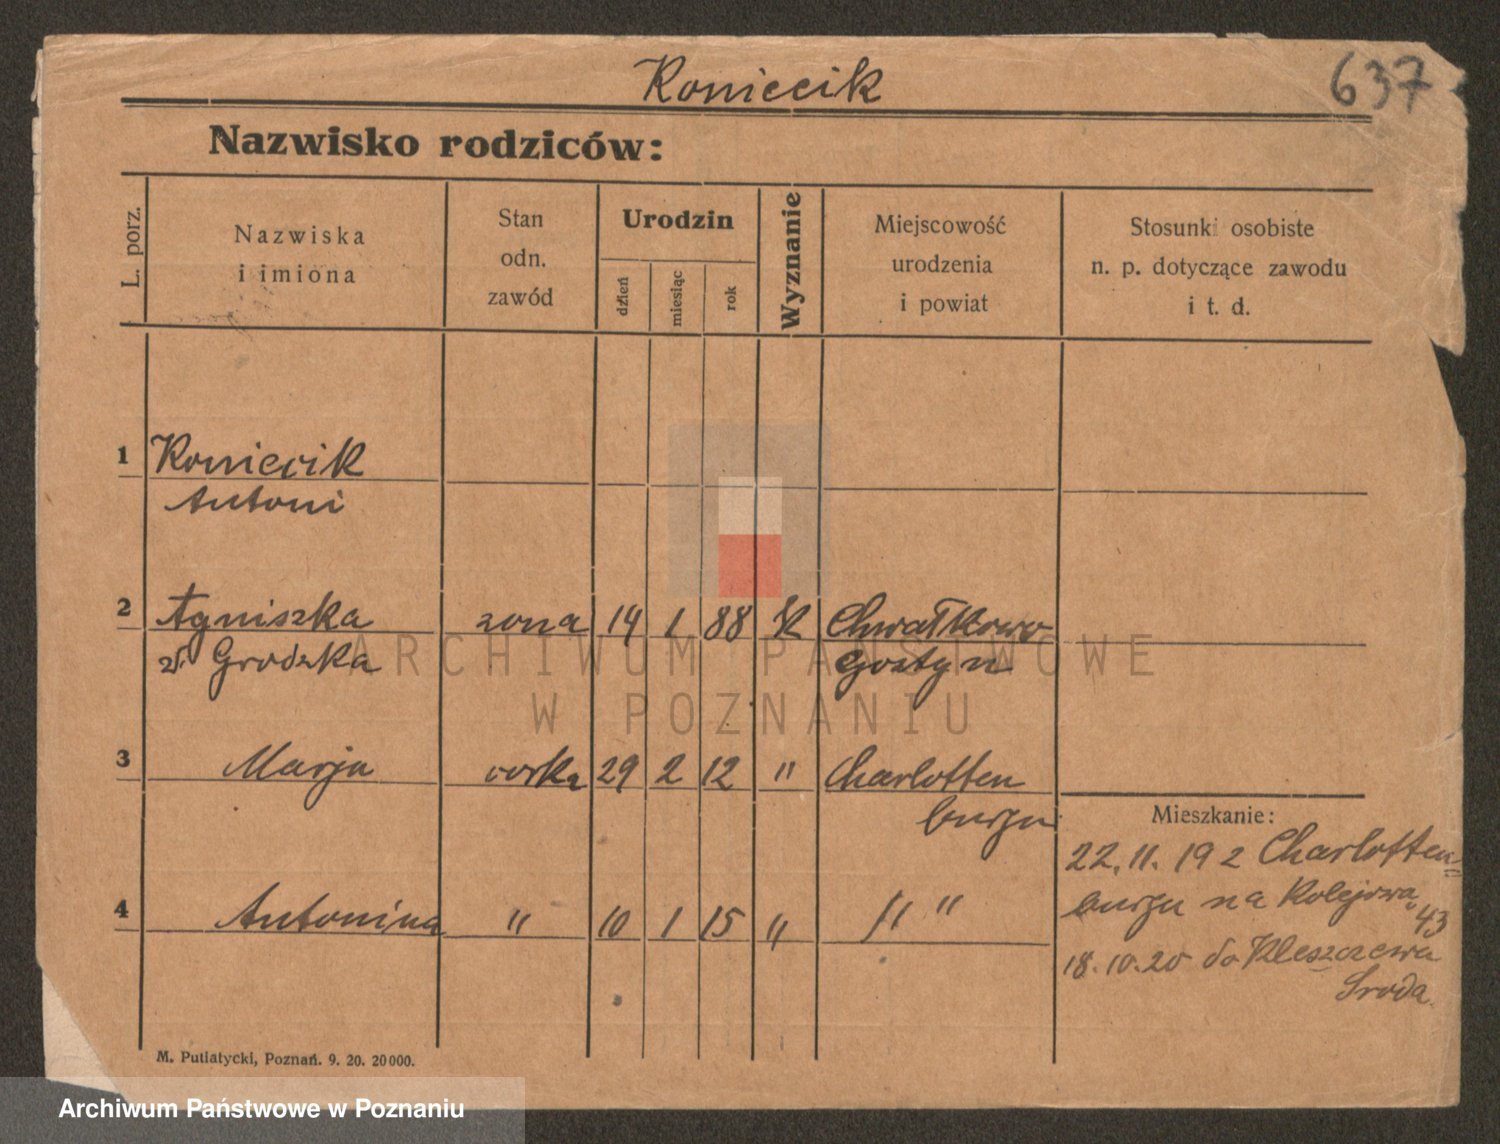 Koniecik
637
Nazwisko rodziców:
L. porz.
Nazwiska
i imiona
Stan
odn.
zawód
Urodzin
dzień
miesiąc
rok
Wyznanie
Miejscowość
urodzenia
i powiat
Stosunki osobiste
n. p. dotyczące zawodu
i t. d.
1 Koniecik
Antoni
2 Agniszka zona 14 1 88 K Chwałkowo
z Grodzka Gostyn
3 Marja corka 29 2 12 " Charlotten
burgu
4 Antonina " 10 1 15 " " "
Mieszkanie:
22. 11. 19 z Charlotten-
burgu na Kolejowa 43
18.10.20 do Kleszczewa
Sroda
M. Putiatycki, Poznań. 9. 20. 20000.
ARCHIWUM PAŃSTWOWE
W POZNANIU
Archiwum Państwowe w Poznaniu